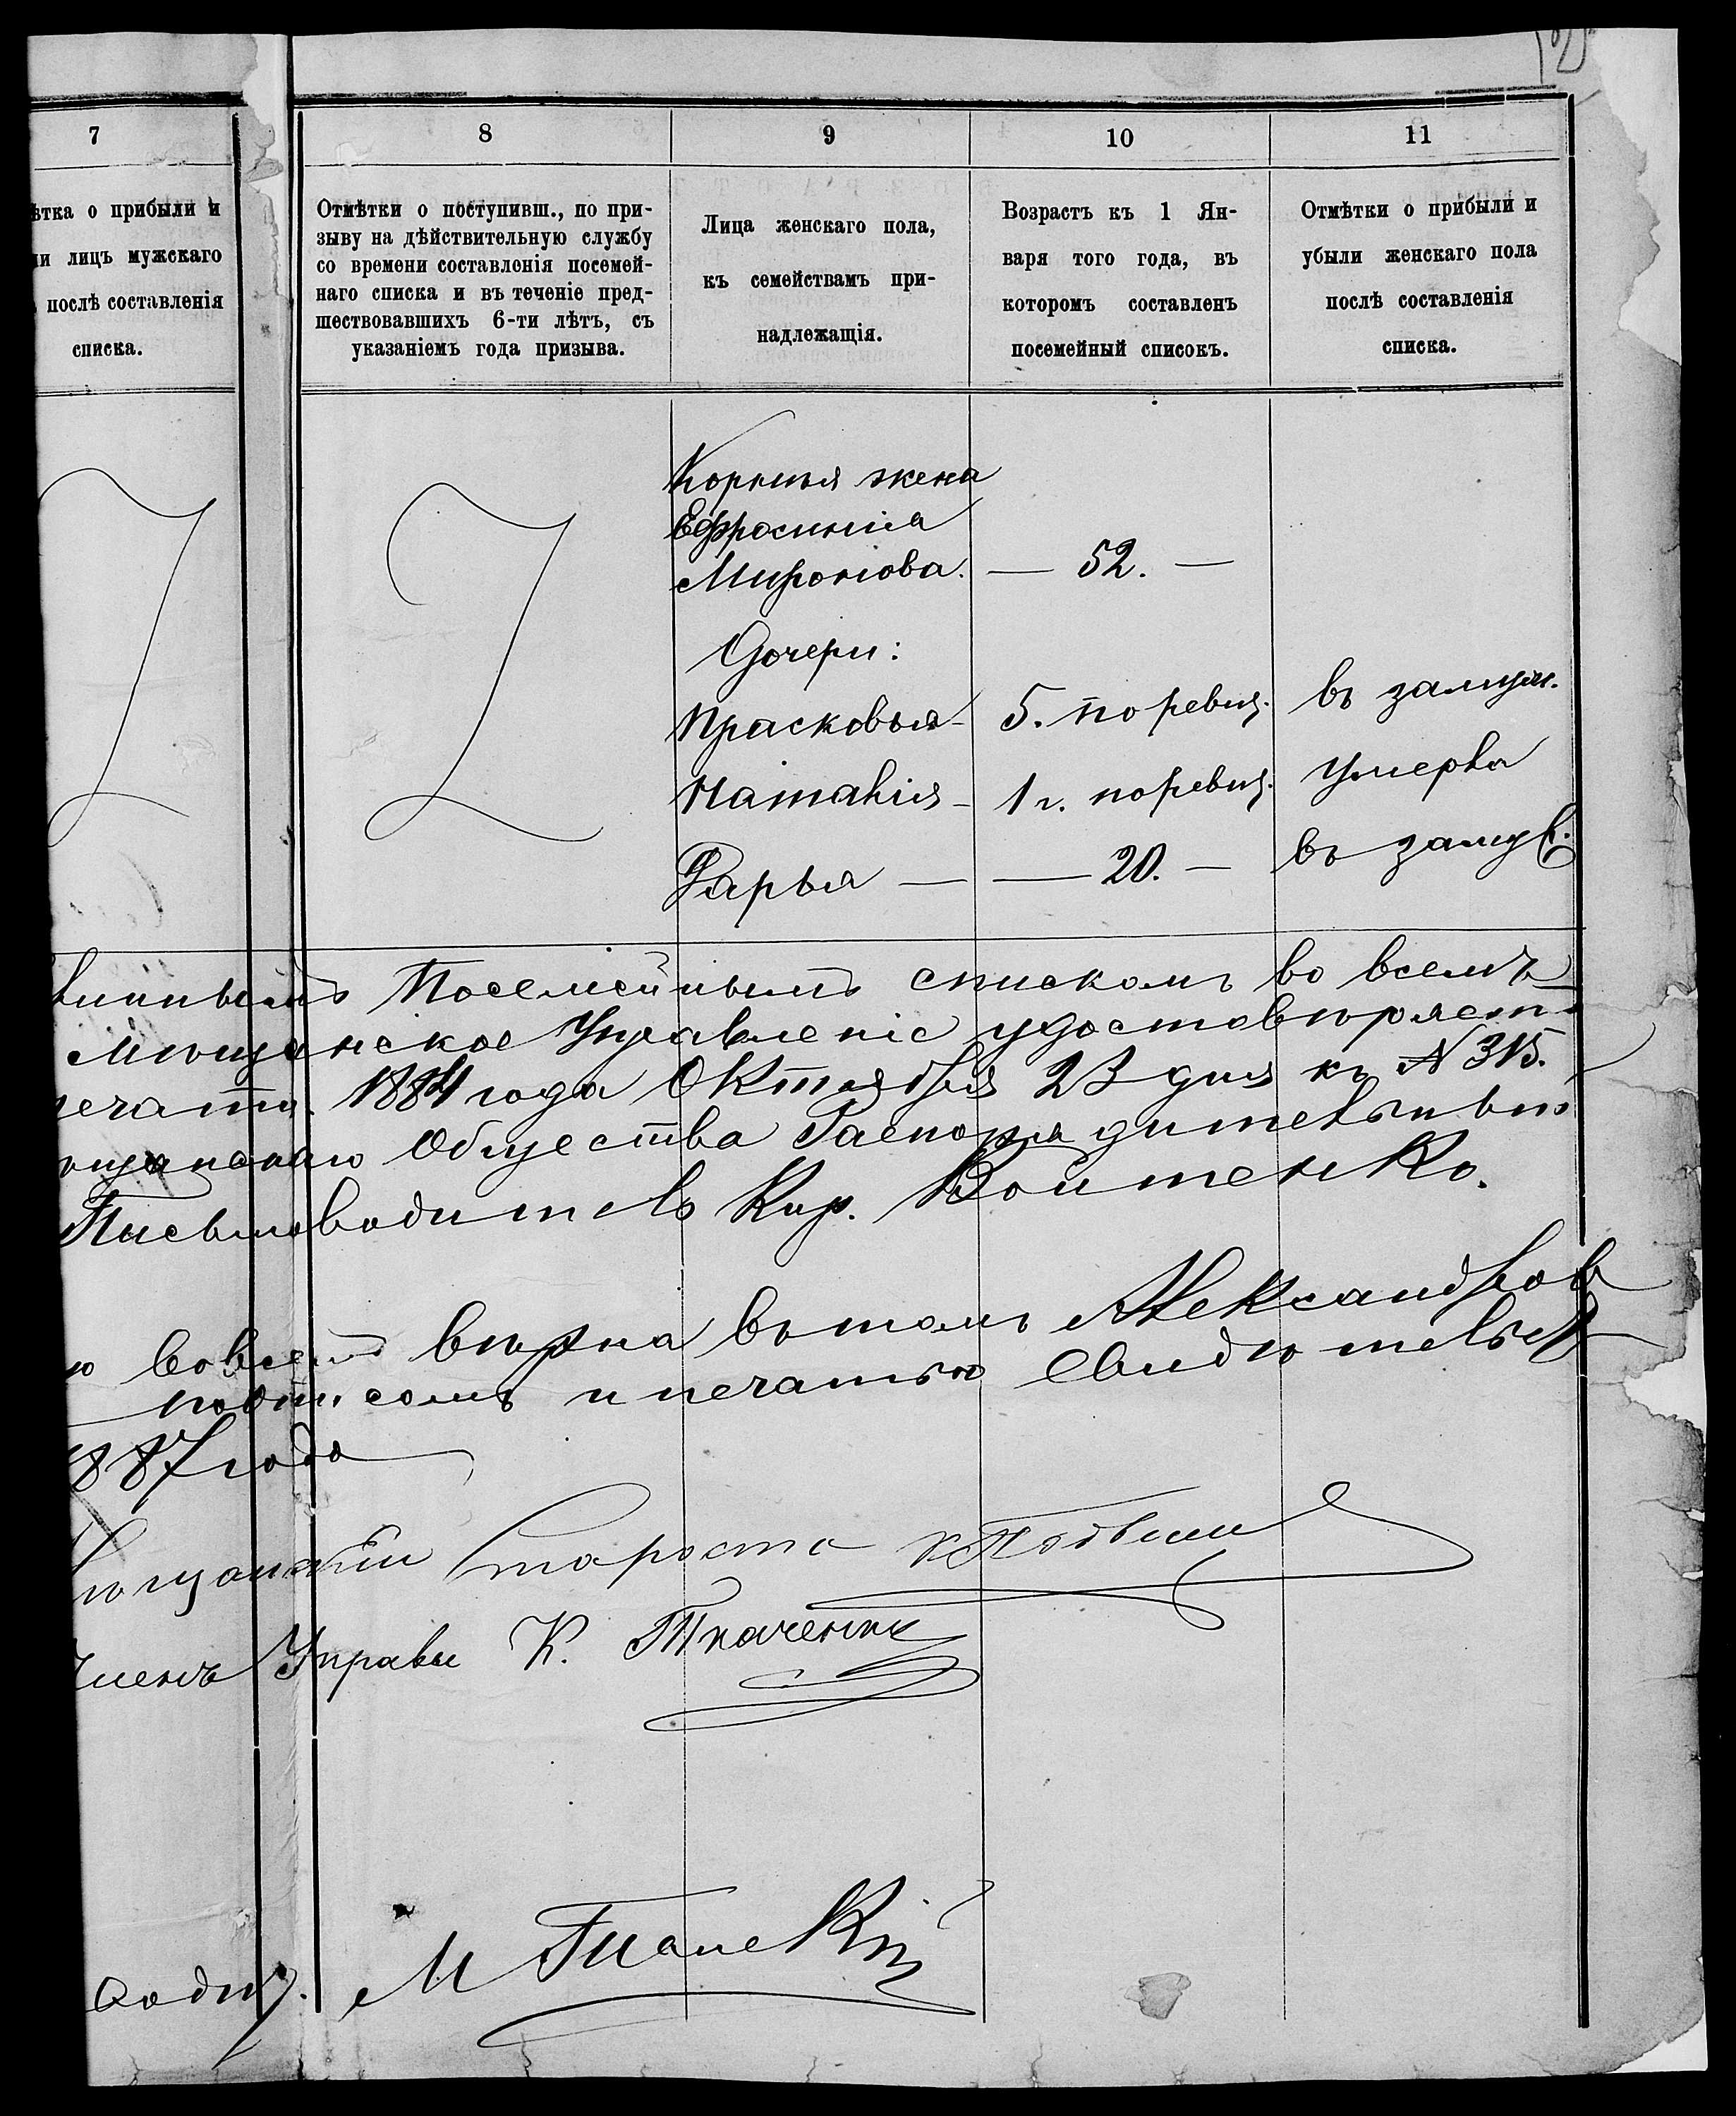 7
8
9
10
11
ѣтка о прибыли и
ли лицъ мужскаго
послѣ составленія
списка.
Отмѣтки о поступивш., по при-
зыву на дѣйствительную службу
со времени составленія посемей-
наго списка и въ теченіе пред-
шествовавшихъ 6-ти лѣтъ, съ
указаніемъ года призыва.
Лица женскаго пола,
къ семействамъ при-
надлежащія.
Возрастъ къ 1 Ян-
варя того года, въ
которомъ составленъ
посемейный списокъ.
Отмѣтки о прибыли и
убыли женскаго пола
послѣ составленія
списка.
Корнѣя жена
Ефросинія
Миронова. — 52. —
Дочери:
Прасковья — 5. по ревиз. въ замуж.
Наталія — 1 г. по ревиз. умерла
Дарья — — 20. — въ замуж.
Посемейнымъ спискомъ во всемъ
Мѣщанское Управленіе удостовѣряетъ
печати. 1884 года Октября 23 дня къ № 315.
Общества Распорядительный
Письмоводитель Кир. Войтенко.
во всемъ вѣрна въ томъ Александров
подписомъ и печатью
1887 года
Староста
Членъ Управы К. Ткаченко
М